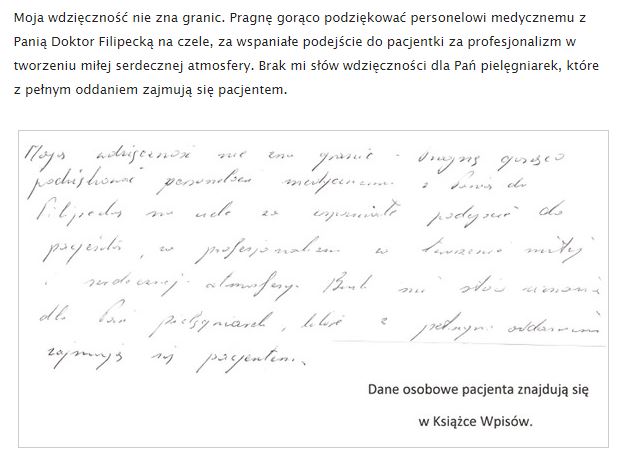 Moja wdzięczność nie zna granic. Pragnę gorąco podziękować personelowi medycznemu z
Panią Doktor Filipecką na czele, za wspaniałe podejście do pacjentki za profesjonalizm w
tworzeniu miłej serdecznej atmosfery. Brak mi słów wdzięczności dla Pań pielęgniarek, które
z pełnym oddaniem zajmują się pacjentem.
Moja wdzięczność nie zna granic. Pragnę gorąco
podziękować personelowi medycznemu z Panią dr
Filipecką na czele za wspaniałe podejście do
pacjentów, za profesjonalizm w tworzeniu miłej
i serdecznej atmosfery. Brak mi słów uznania
dla Pań pielęgniarek, które z pełnym oddaniem
zajmują się pacjentem.
Dane osobowe pacjenta znajdują się
w Książce Wpisów.